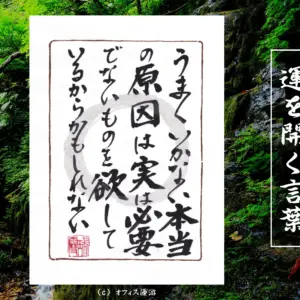 運を開く言葉
うまくいかない本当
の原因は実は必要
でないものを欲して
いるからかもしれない
(c) オフィス蓮沼